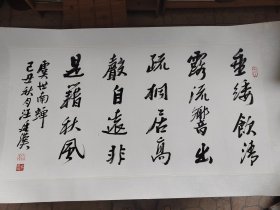 垂緌飲清
露流響出
疏桐居高
聲自遠非
是藉秋風
虞世南蟬
己丑秋月汪